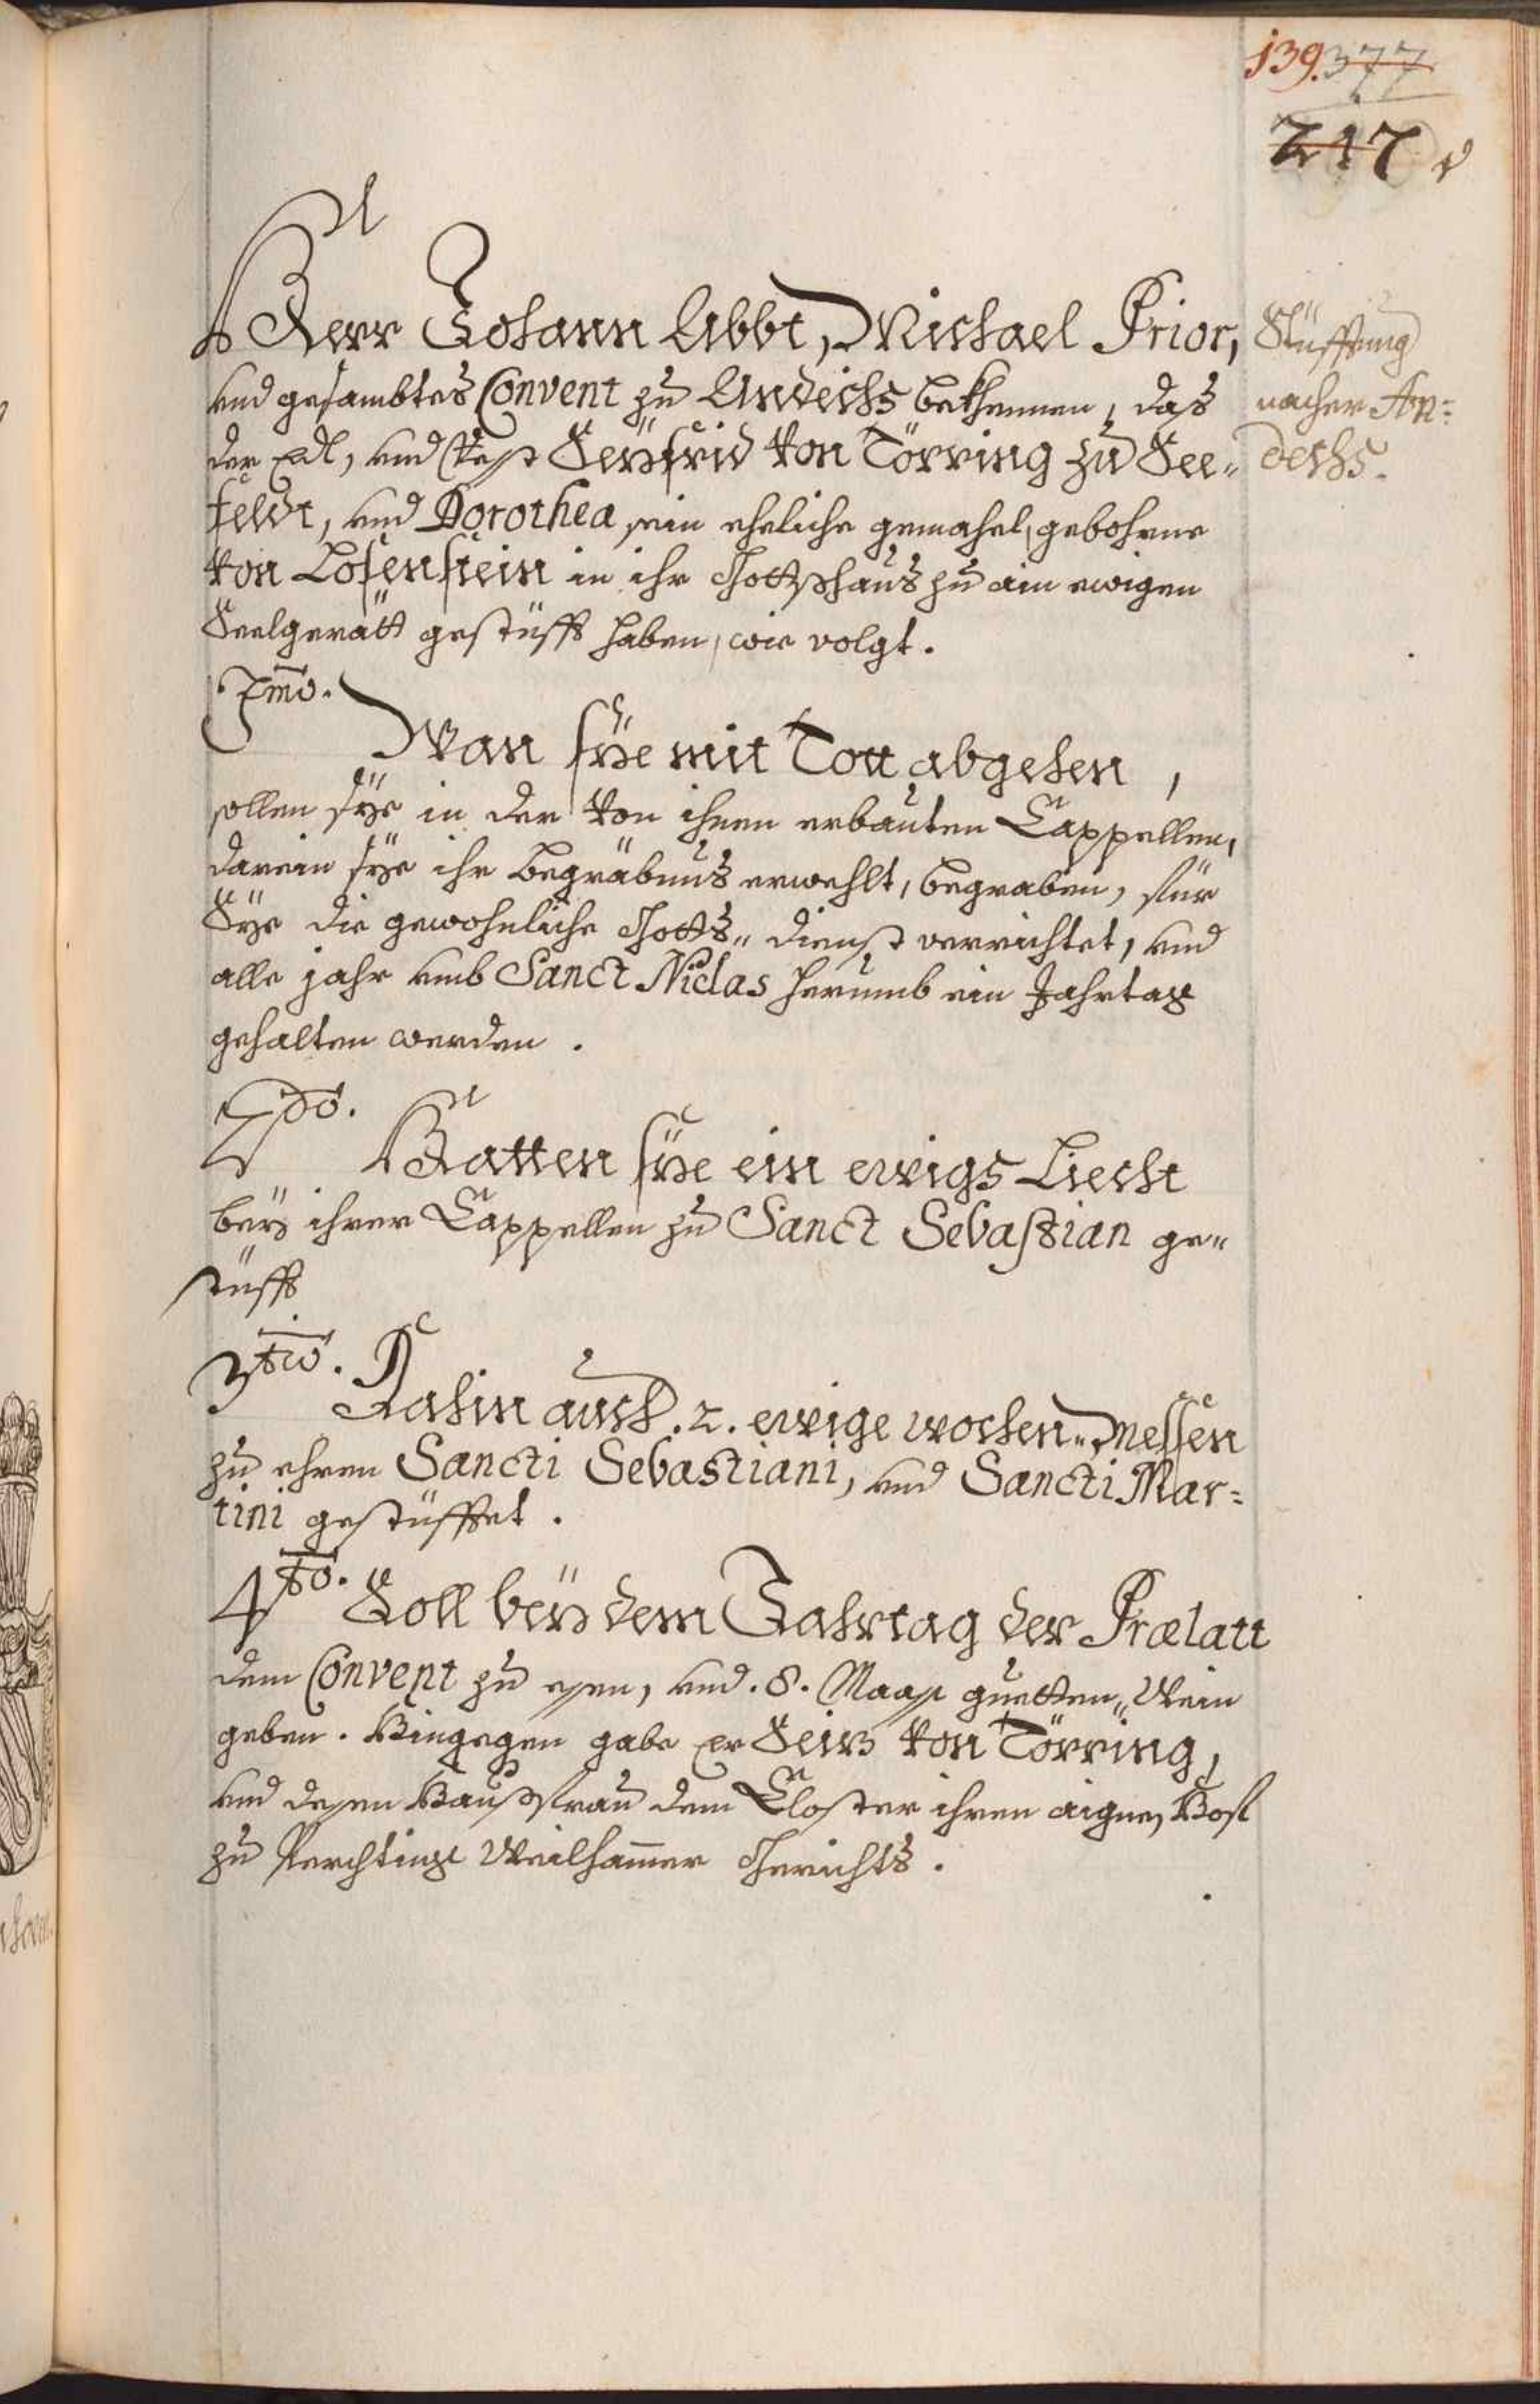 139. 377
247
Herr Johann Abbt, Michael Prior,
und gesambtes Convent zu Andechs bekhennen, das
der Edl, und Vest Seÿfrid von Törring zu See„
feldt, und Dorothea sein eheliche gemahel, gebohrne
von Losenstein in ihr Gottshaus zu ain ewigen
Seelgerätt gestüfft haben, wie volgt.
Stüfftung
nacher An=
dechs.
1mo.
Wan sÿe mit Tott abgehen,
sollen sÿe in der von ihnen erbauten Cappellen,
darein sÿe ihr begräbnus erwehlt, begraben, für
Sÿe die gewohnliche Gotts„ dienst verrichtet, und
alle jahr umb Sanct Niclas herumb ein Jahrtag
gehalten werden.
2do.
Hatten sÿe ein ewigs Liecht
beÿ ihrer Cappellen zu Sanct Sebastian ge„
stüfft
3tio.
Dahin auch .2. ewige wochen„ Messen
zu ehren Sancti Sebastiani, und Sancti Mar=
tini gestüfftet.
4to. Soll beÿ dem Jahrtag der Prælatt
dem Convent zu essen, und .8. Maass guetten„ Wein
geben. Hingegen gabe Er Seiz von Törring,
und dessen Haussfrau dem Closter ihren aignen Hof
zu Perchting Weilhammer Gerichts.